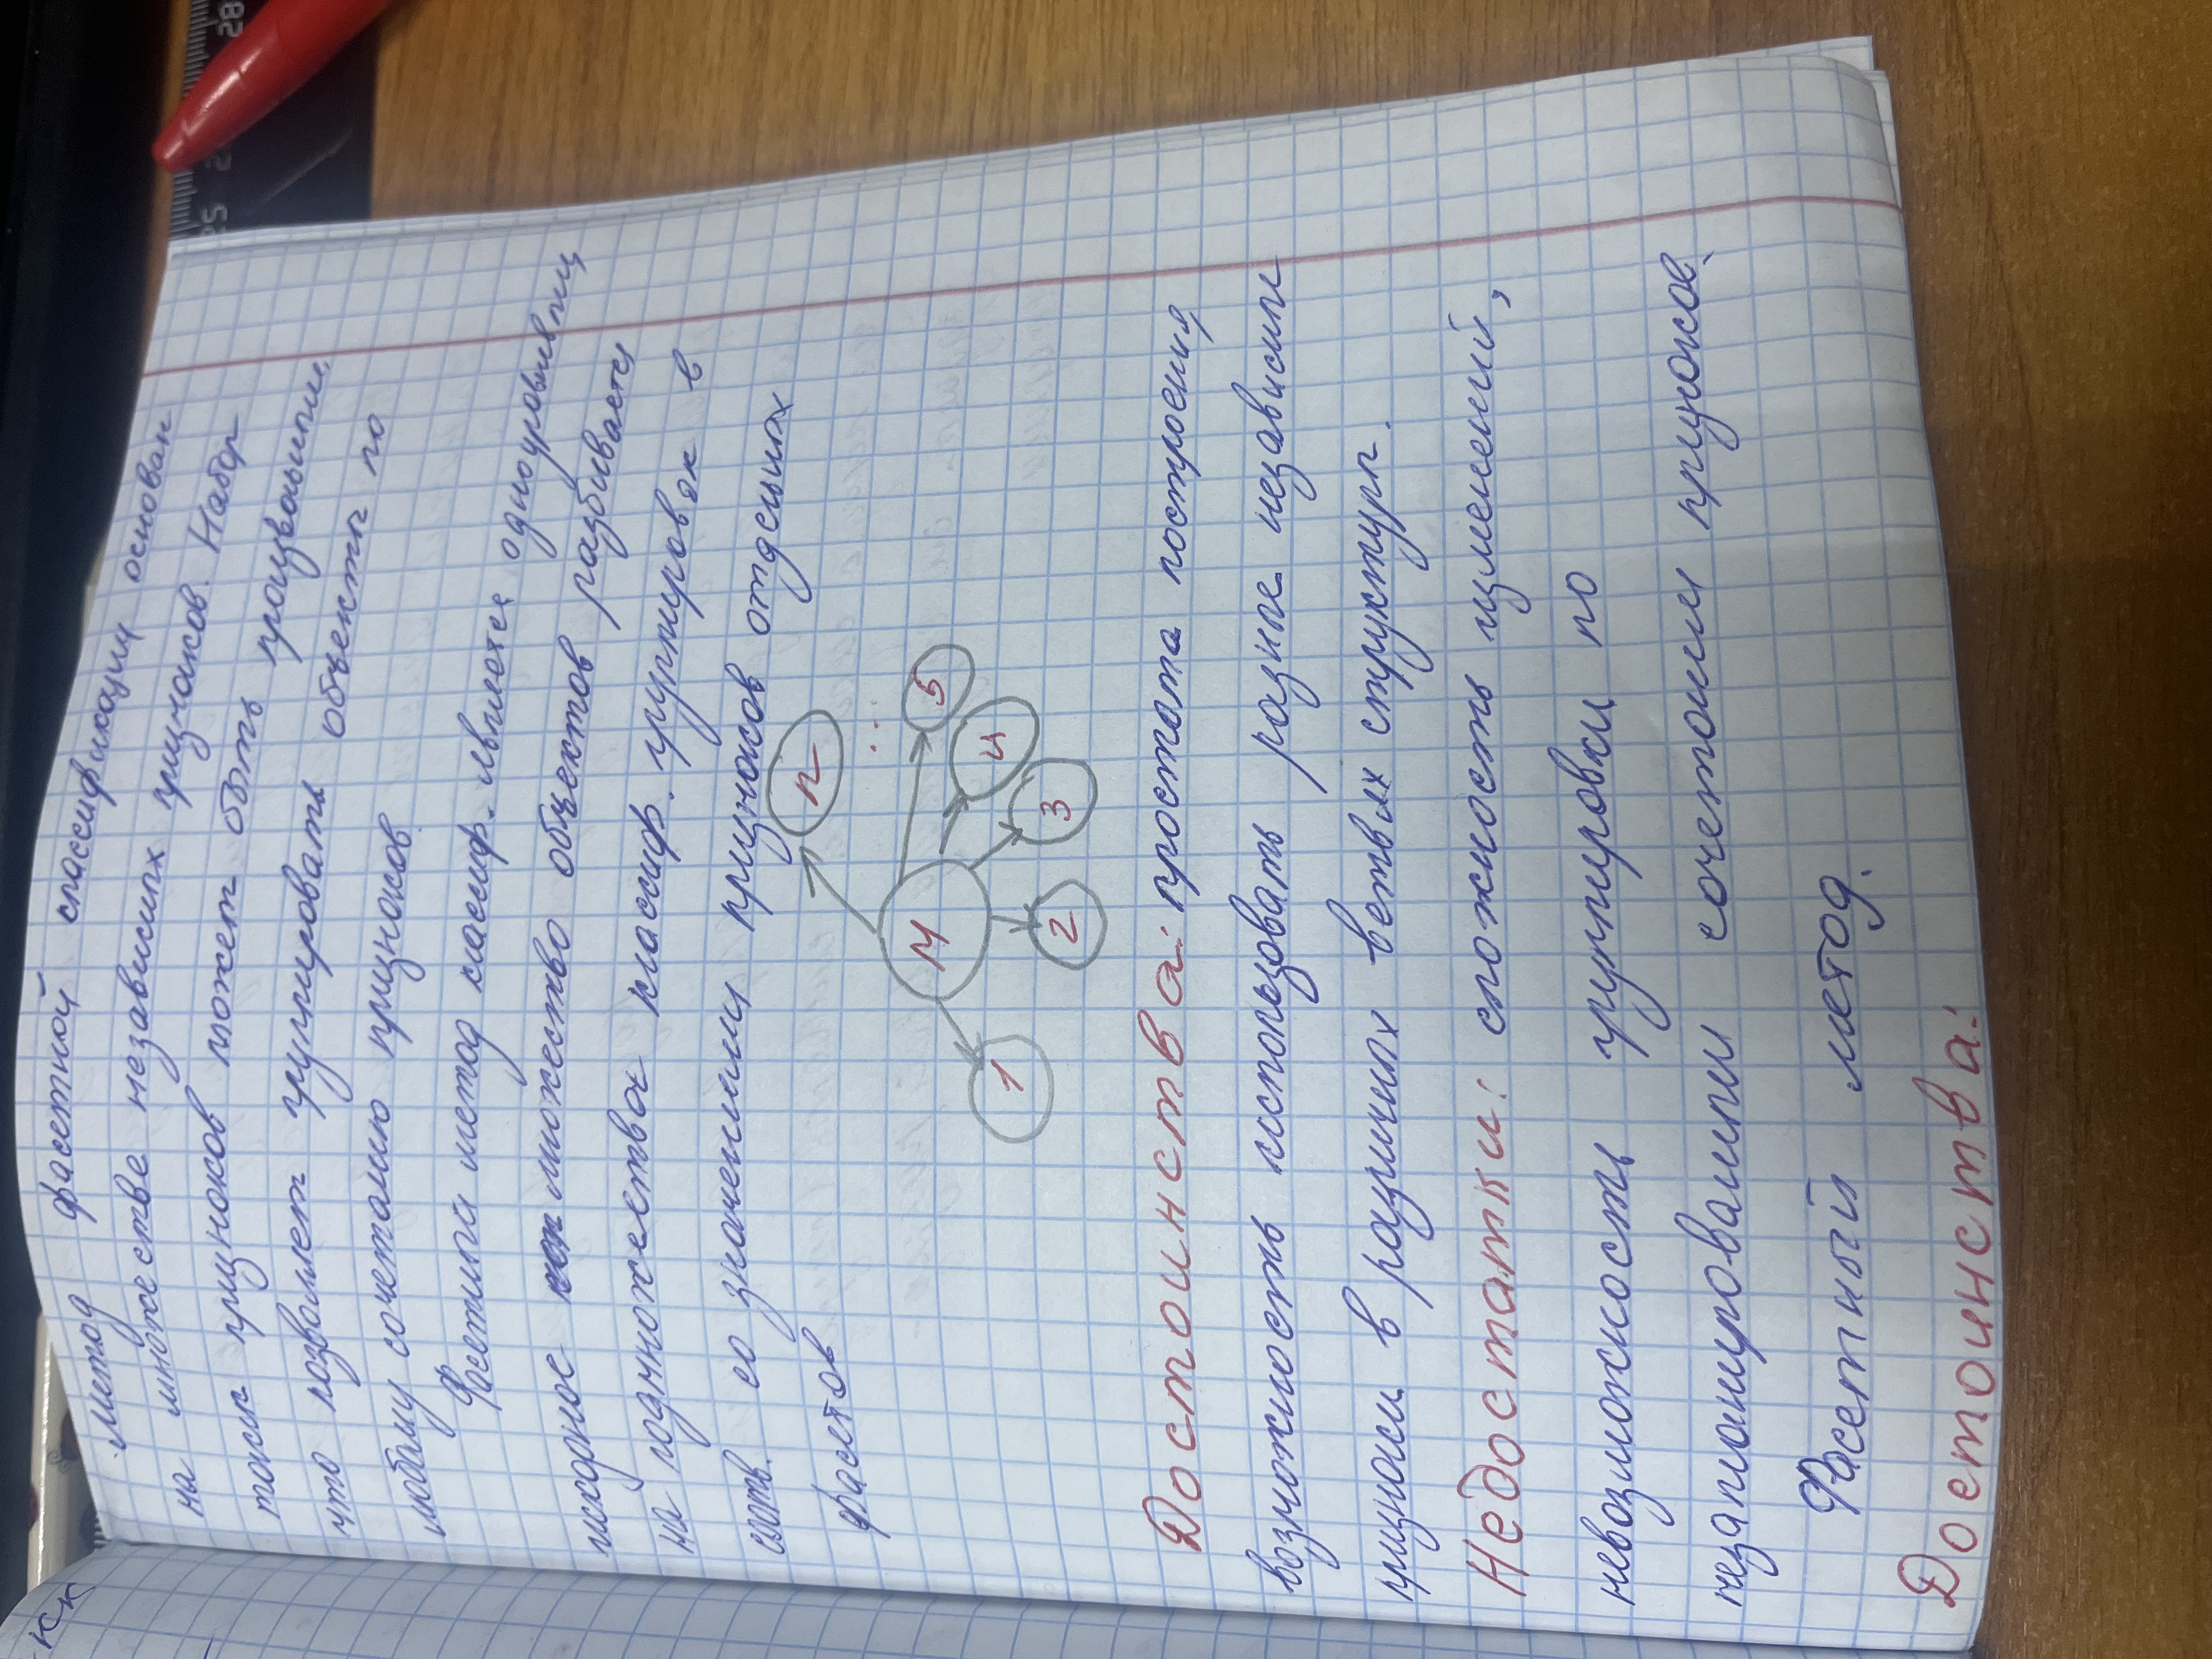 Метод фасетной классификации основан
на множестве независимых признаков. Набор
таких признаков может быть произвольным,
что позволяет группировать объекты по
любому сочетанию признаков.
Фасетный метод классиф. является одноуровневым,
исходное множество объектов разбивается
на подмножества классиф. группировок в
соотв. со значениями признаков отдельных
фасетов
М
1
2
3
4
5
...
n
Достоинства: простота построения,
возможность использовать разные независимые
признаки в различных ветвях структуры.
Недостатки: сложность изменений,
невозможность группировки по
незапланированным сочетаниям признаков.
Фасетный метод.
Достоинства: